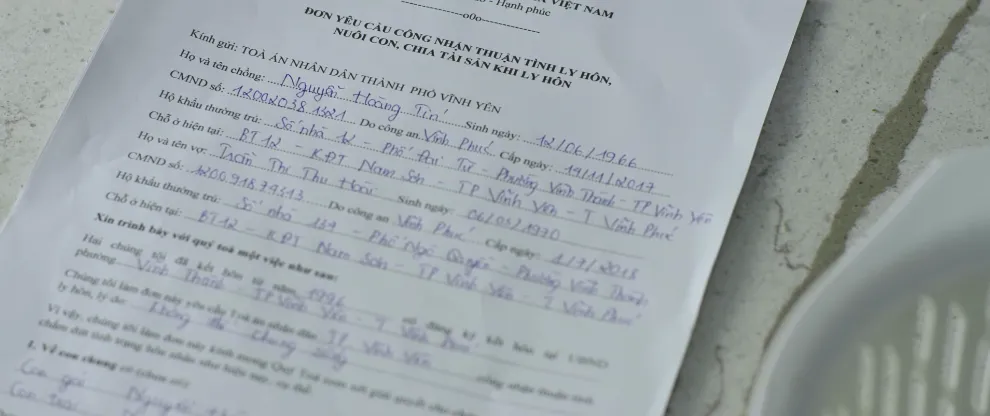 VIỆT NAM
- Hạnh phúc
---o0o---
ĐƠN YÊU CẦU CÔNG NHẬN THUẬN TÌNH LY HÔN,
NUÔI CON, CHIA TÀI SẢN KHI LY HÔN
Kính gửi: TOÀ ÁN NHÂN DÂN THÀNH PHỐ VĨNH YÊN
Họ và tên chồng: Nguyễn Hoàng Tín Sinh ngày: 12/06/1966
CMND số: 12002038 1321 Do công an Vĩnh Phúc Cấp ngày: 19/11/2017
Hộ khẩu thường trú: Số nhà 12 - Phố - Phường Vĩnh Thành - TP Vĩnh Yên
Chỗ ở hiện tại: BT12 - KĐT Nam Sơn - TP Vĩnh Yên - T Vĩnh Phúc
Họ và tên vợ: Trần Thị Thu Hoài Sinh ngày: 06/05/1970
CMND số: 120091879313 Do công an Vĩnh Phúc Cấp ngày: 1/7/2018
Hộ khẩu thường trú: Số nhà 139 - Phố Ngô Quyền - Phường Vĩnh Thành,
Chỗ ở hiện tại: BT12 - KĐT Nam Sơn - TP Vĩnh Yên - T Vĩnh Phúc
Xin trình bày với quý toà một việc như sau:
Hai chúng tôi đã kết hôn từ năm 1996 có đăng ký kết hôn tại UBND
phường Vĩnh Thành - TP Vĩnh Yên - T Vĩnh Phúc
Chúng tôi làm đơn này yêu cầu Toà án nhân dân TP Vĩnh Yên công nhận thuận tình
ly hôn, lý do: Không thể chung sống
Vì vậy, chúng tôi làm đơn này kính mong Quý Toà xem xét giải quyết cho
chấm dứt tình trạng hôn nhân như hiện nay, cụ thể:
1. Về con chung
Con gái Nguyễn
Con trai